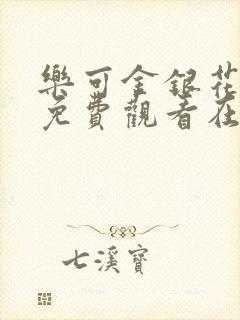 樂可金銀花
免費觀看在
七溪寶